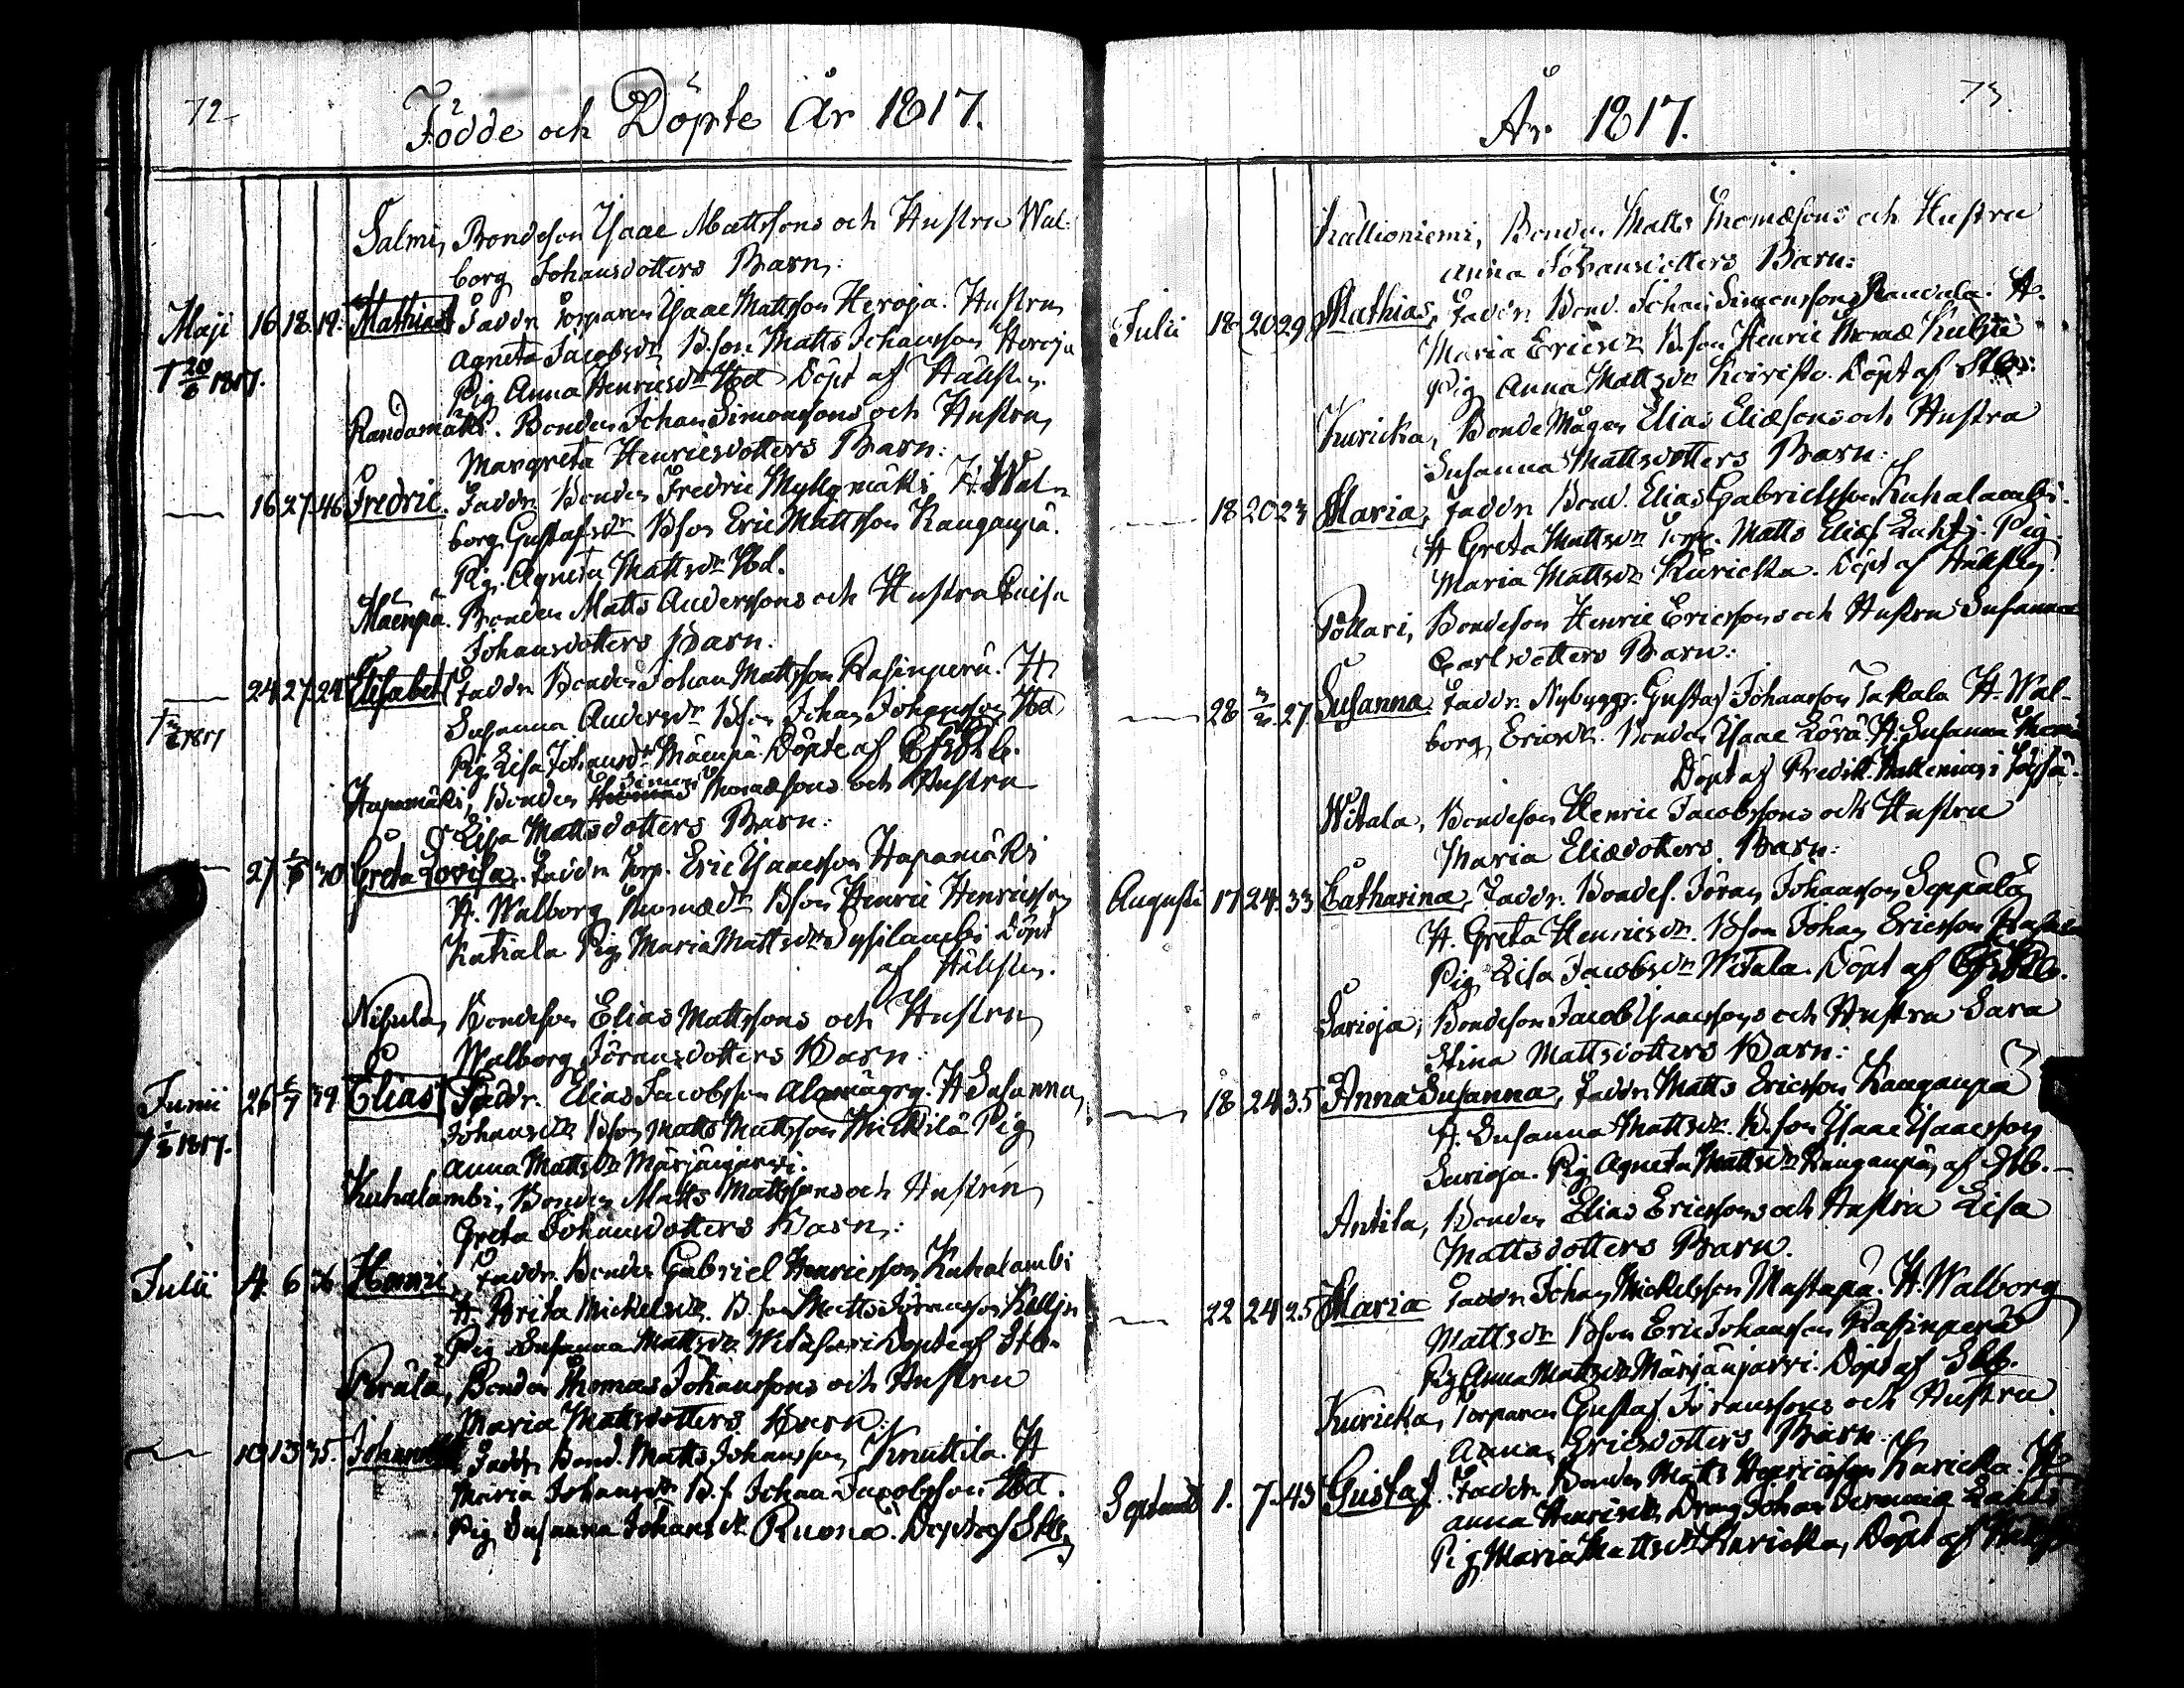 72
Födde och Döpte År 1817.
Salmi, Bondeson Isaac Mattssons och Hustru Wal-
borg Johansdotters Barn:
Maji 16 18. 19. Mathias Faddr. Torparen Isaac Mattsson Heroja. Hustru
Agneta Jacobsdr B.son Matts Johansson Heroja
1817. Pig. Anna Henricsdr Ibd Döpt af Hällst.
Randamäki. Bonden Johan Simonssons och Hustru
Margreta Henricsdotters Barn:
16 27. 46 Fredric. Faddr. Bonden Fredric Myllymäki H. Wal-
borg Gustafsdr Bson Eric Mattsson Kangaspä.
Pig. Agneta Mattsdr Ibd.
Mäenpä. Bonden Matts Anderssons och Hustru Caisa
Johansdotters Barn.
24. 27. 24 Elisabet Faddr. Bonden Johan Mattsson Rasinperä. H
1817 Susanna Andersdr Bson Johan Johansson Ibd
Pig. Lisa Johansdr Mäenpä Döpte af
Hapamäki, Bonden Simon Thomassons och Hustru
Lisa Mattsdotters Barn:
27 30 Greta Lovisa. Faddr. Torp. Eric Isaacsson Hapamäki
H. Walborg Thomædr Bson Henric Henricsson
Katiala Pig. Maria Mattsdr Syssilambi Döpt
af Hällst.
Nisula, Bondeson Elias Mattssons och Hustru
Walborg Jöransdotters Barn:
Junii 26 39 Elias Faddr. Elias Jacobsson H Susanna
Johansdr Bson Matts Mattsson Mickilä Pig
1817. Anna Mattsdr Märjänjärvi.
Kuhalambi, Bonden Matts Mattssons och Hustru
Greta Johansdotters Barn:
Julii 4 6 36 Henric Faddr. Bonden Gabriel Henricsson Kuhalambi
H. Brita Mickelsdr. B.son Matts Jöransson
Pig Susanna Mattsdr Witasari Döpte af Stbr
Peräla, Bonden Thomas Johanssons och Hustru
Maria Mattsdotters Barn:
10 13 35. Johannes Faddr. Bond. Matts Johansson Knuttila. H
Maria Johansdr B.s Johan Jacobsson Ibd.
Pig Susanna Johansdr Ruona. Döpt af Stbr
73.
År 1817.
Kallioniemi, Bonden Matts Thomæsons och Hustru
Anna Johansdotters Barn:
Julii 18 20 29 Mathias, Faddr. Bond. Johan Simonsson Randala. H.
Maria Ericsdr B.son Henric Thomæ
Pig Anna Mattsdr Koivisto. Döpt af Stbr:
Kuricka, Bonde Mågen Elias Eliæsons och Hustru
Susanna Mattsdotters Barn:
18 20 23 Maria, Faddr. Bond. Elias Gabrielsson Kuhalambi.
H Greta Mattsdr Torp. Matts Eliæs. Lahti. Pig
Maria Mattsdr Kuricka. Döpt af Hällst.
Pollari, Bondeson Henric Ericssons och Hustru Susanna
Carlsdotters Barn:
28 27 Susanna Faddr. Nybyggr. Gustaf Johansson Takala H. Wal-
borg Ericsdr. Bonden Isaac H. Susanna
Döpt af Predik.
Witala, Bondeson Henric Jacobssons och Hustru
Maria Eliædotters Barn:
Augusti 17. 24. 33 Catharina, Faddr. Bondes. Jöran Johansson Seppälä
H. Greta Henricsdr. Bson Johan Ericsson
Pig Lisa Jacobsdr Witala. Döpt af
Sarioja, Bondeson Jacob Isaacssons och Hustru Sara
Stina Mattsdotters Barn:
18 24. 35 Anna Susanna, Faddr. Matts Ericsson Kangaspä
H. Susanna Mattsdr. B.son Isaac Isaacsson
Sarioja. Pig Agneta Mattsdr Kangaspä af Stb.
Antila, Bonden Elias Ericssons och Hustru Lisa
Mattsdotters Barn.
22 24 25 Maria Faddr. Johan Mickelsson Mastapä. H. Walborg
Mattsdr Bson Eric Johansson Rasinperä
Pig Anna Mattsdr Märjänjärvi. Döpt af Stb.
Kuricka, Torparen Gustaf Jöranssons och Hustru
Anna Ericsdotters Barn:
Septemb 1. 7. 43 Gustaf. Faddr. Bonden Matts Henricsson Kuricka. H
Anna Henricsdr Dräng Johan Jeremiæ
Pig Maria Mattsdr Kuricka, Döpt af Hällst